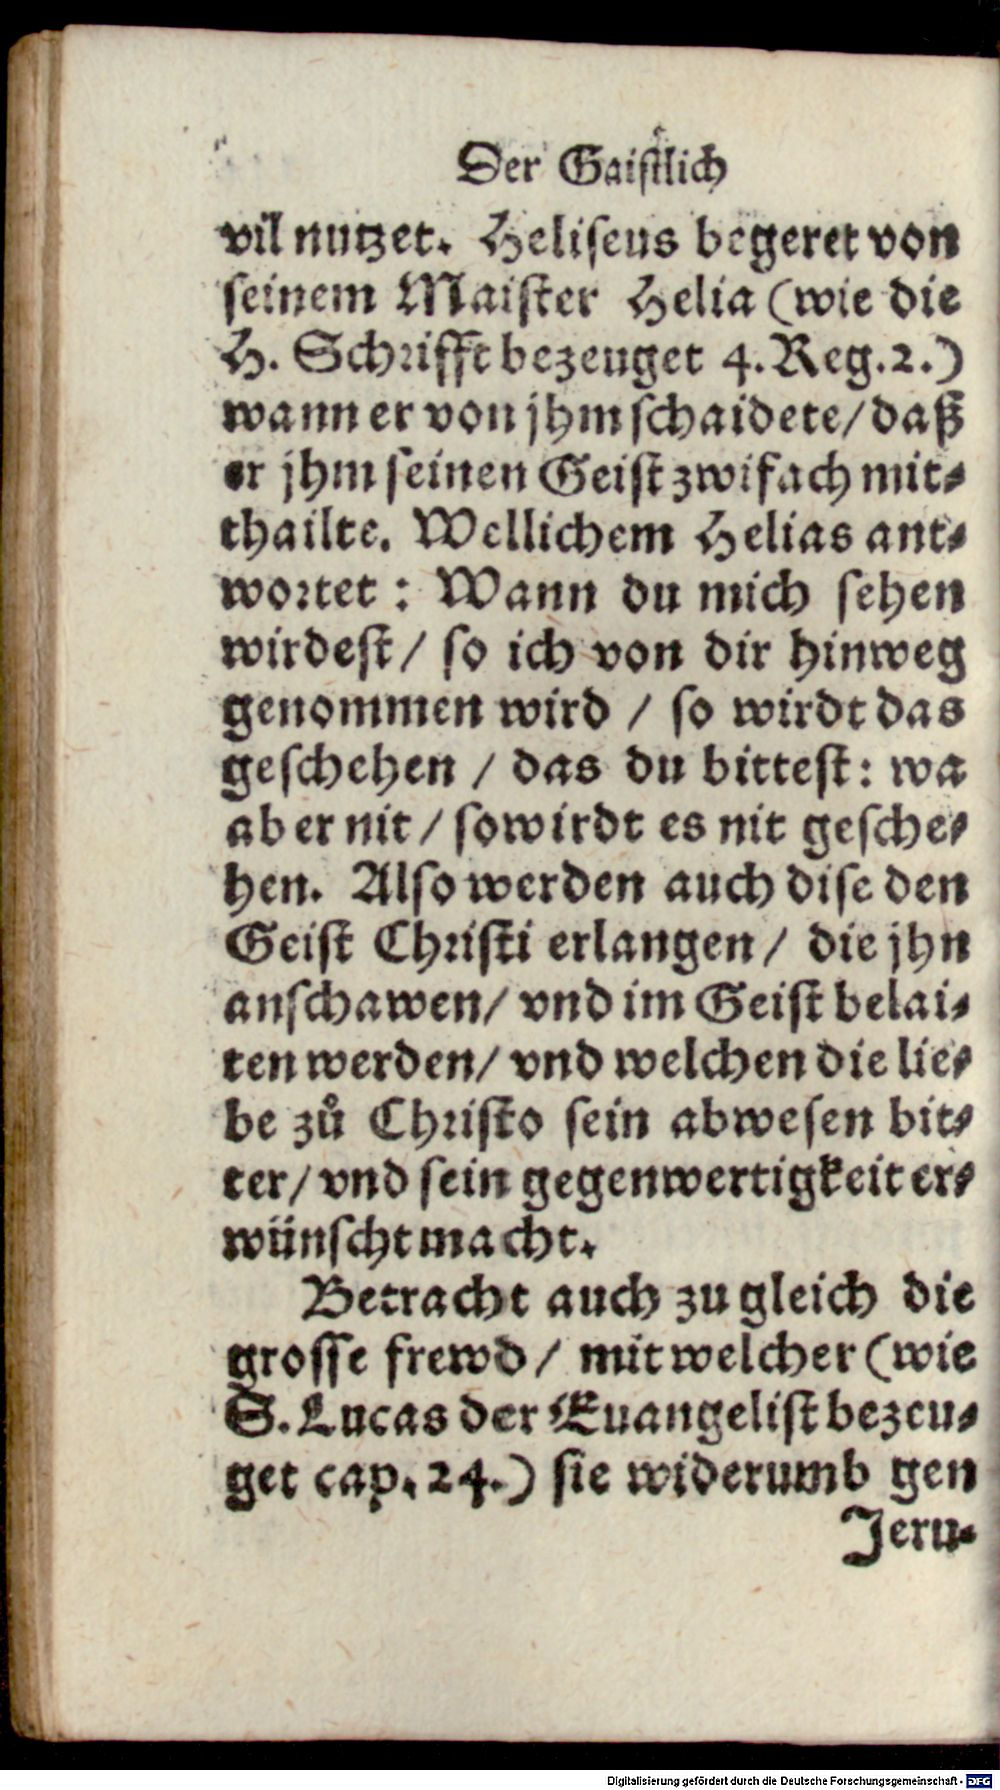 Der Gaistlich
vil nutzet. Heliseus begeret von
seinem Maister Helia (wie die
H. Schrifft bezeuget 4. Reg. 2.)
wann er von jhm schaidete / daß
er jhm seinen Geist zwifach mit⸗
thailte. Wellichem Helias ant⸗
wortet : Wann du mich sehen
wirdest / so ich von dir hinweg
genommen wird / so wirdt das
geschehen / das du bittest : wa
aber nit / so wirdt es nit gesche⸗
hen. Also werden auch dise den
Geist Christi erlangen / die jhn
anschawen / vnd im Geist belai⸗
ten werden / vnd welchen die lie⸗
be zuͦ Christo sein abwesen bit⸗
ter / vnd sein gegenwertigkeit er⸗
wünscht macht.
Betracht auch zu gleich die
grosse frewd / mit welcher (wie
S. Lucas der Euangelist bezeu⸗
get cap. 24.) sie widerumb gen
Jeru⸗
Digitalisierung gefördert durch die Deutsche Forschungsgemeinschaft - DFG